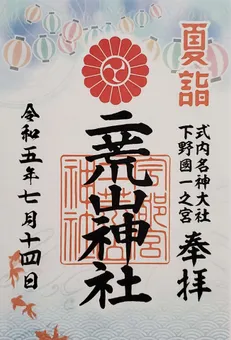 夏詣
式内名神大社
下野國一之宮
奉拝
二荒山神社
令和五年七月十四日